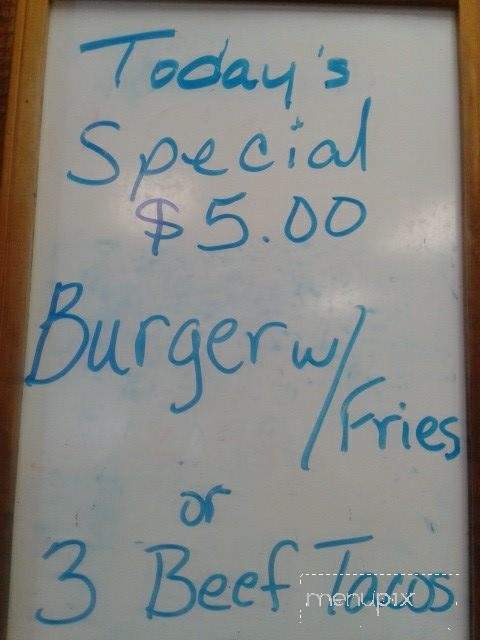 Today's
Special
$5.00
Burger w/
Fries
or
3 Beef Tacos
menupix